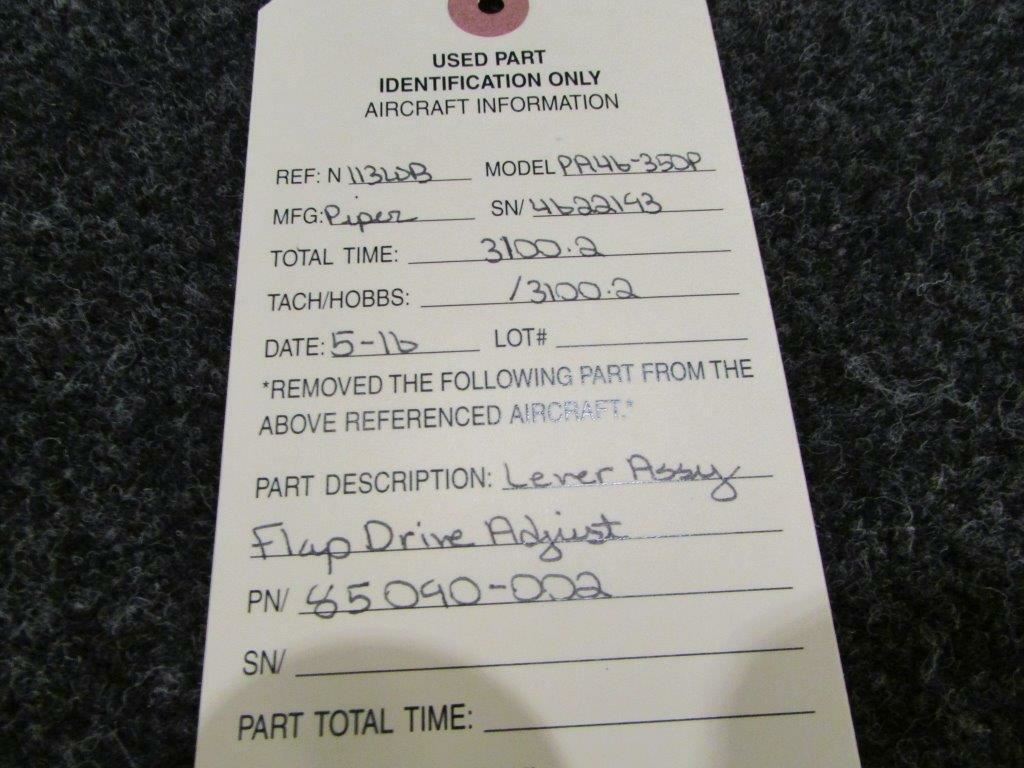 USED PART
IDENTIFICATION ONLY
AIRCRAFT INFORMATION
REF: N 113WB MODEL PA46-350P
MFG: Piper SN/ 4622193
TOTAL TIME: 3100.2
TACH/HOBBS: /3100.2
DATE: 5-16 LOT#
*REMOVED THE FOLLOWING PART FROM THE
ABOVE REFERENCED AIRCRAFT.*
PART DESCRIPTION: Lever Assy
Flap Drive Adjust
PN/ 85090-002
SN/
PART TOTAL TIME: